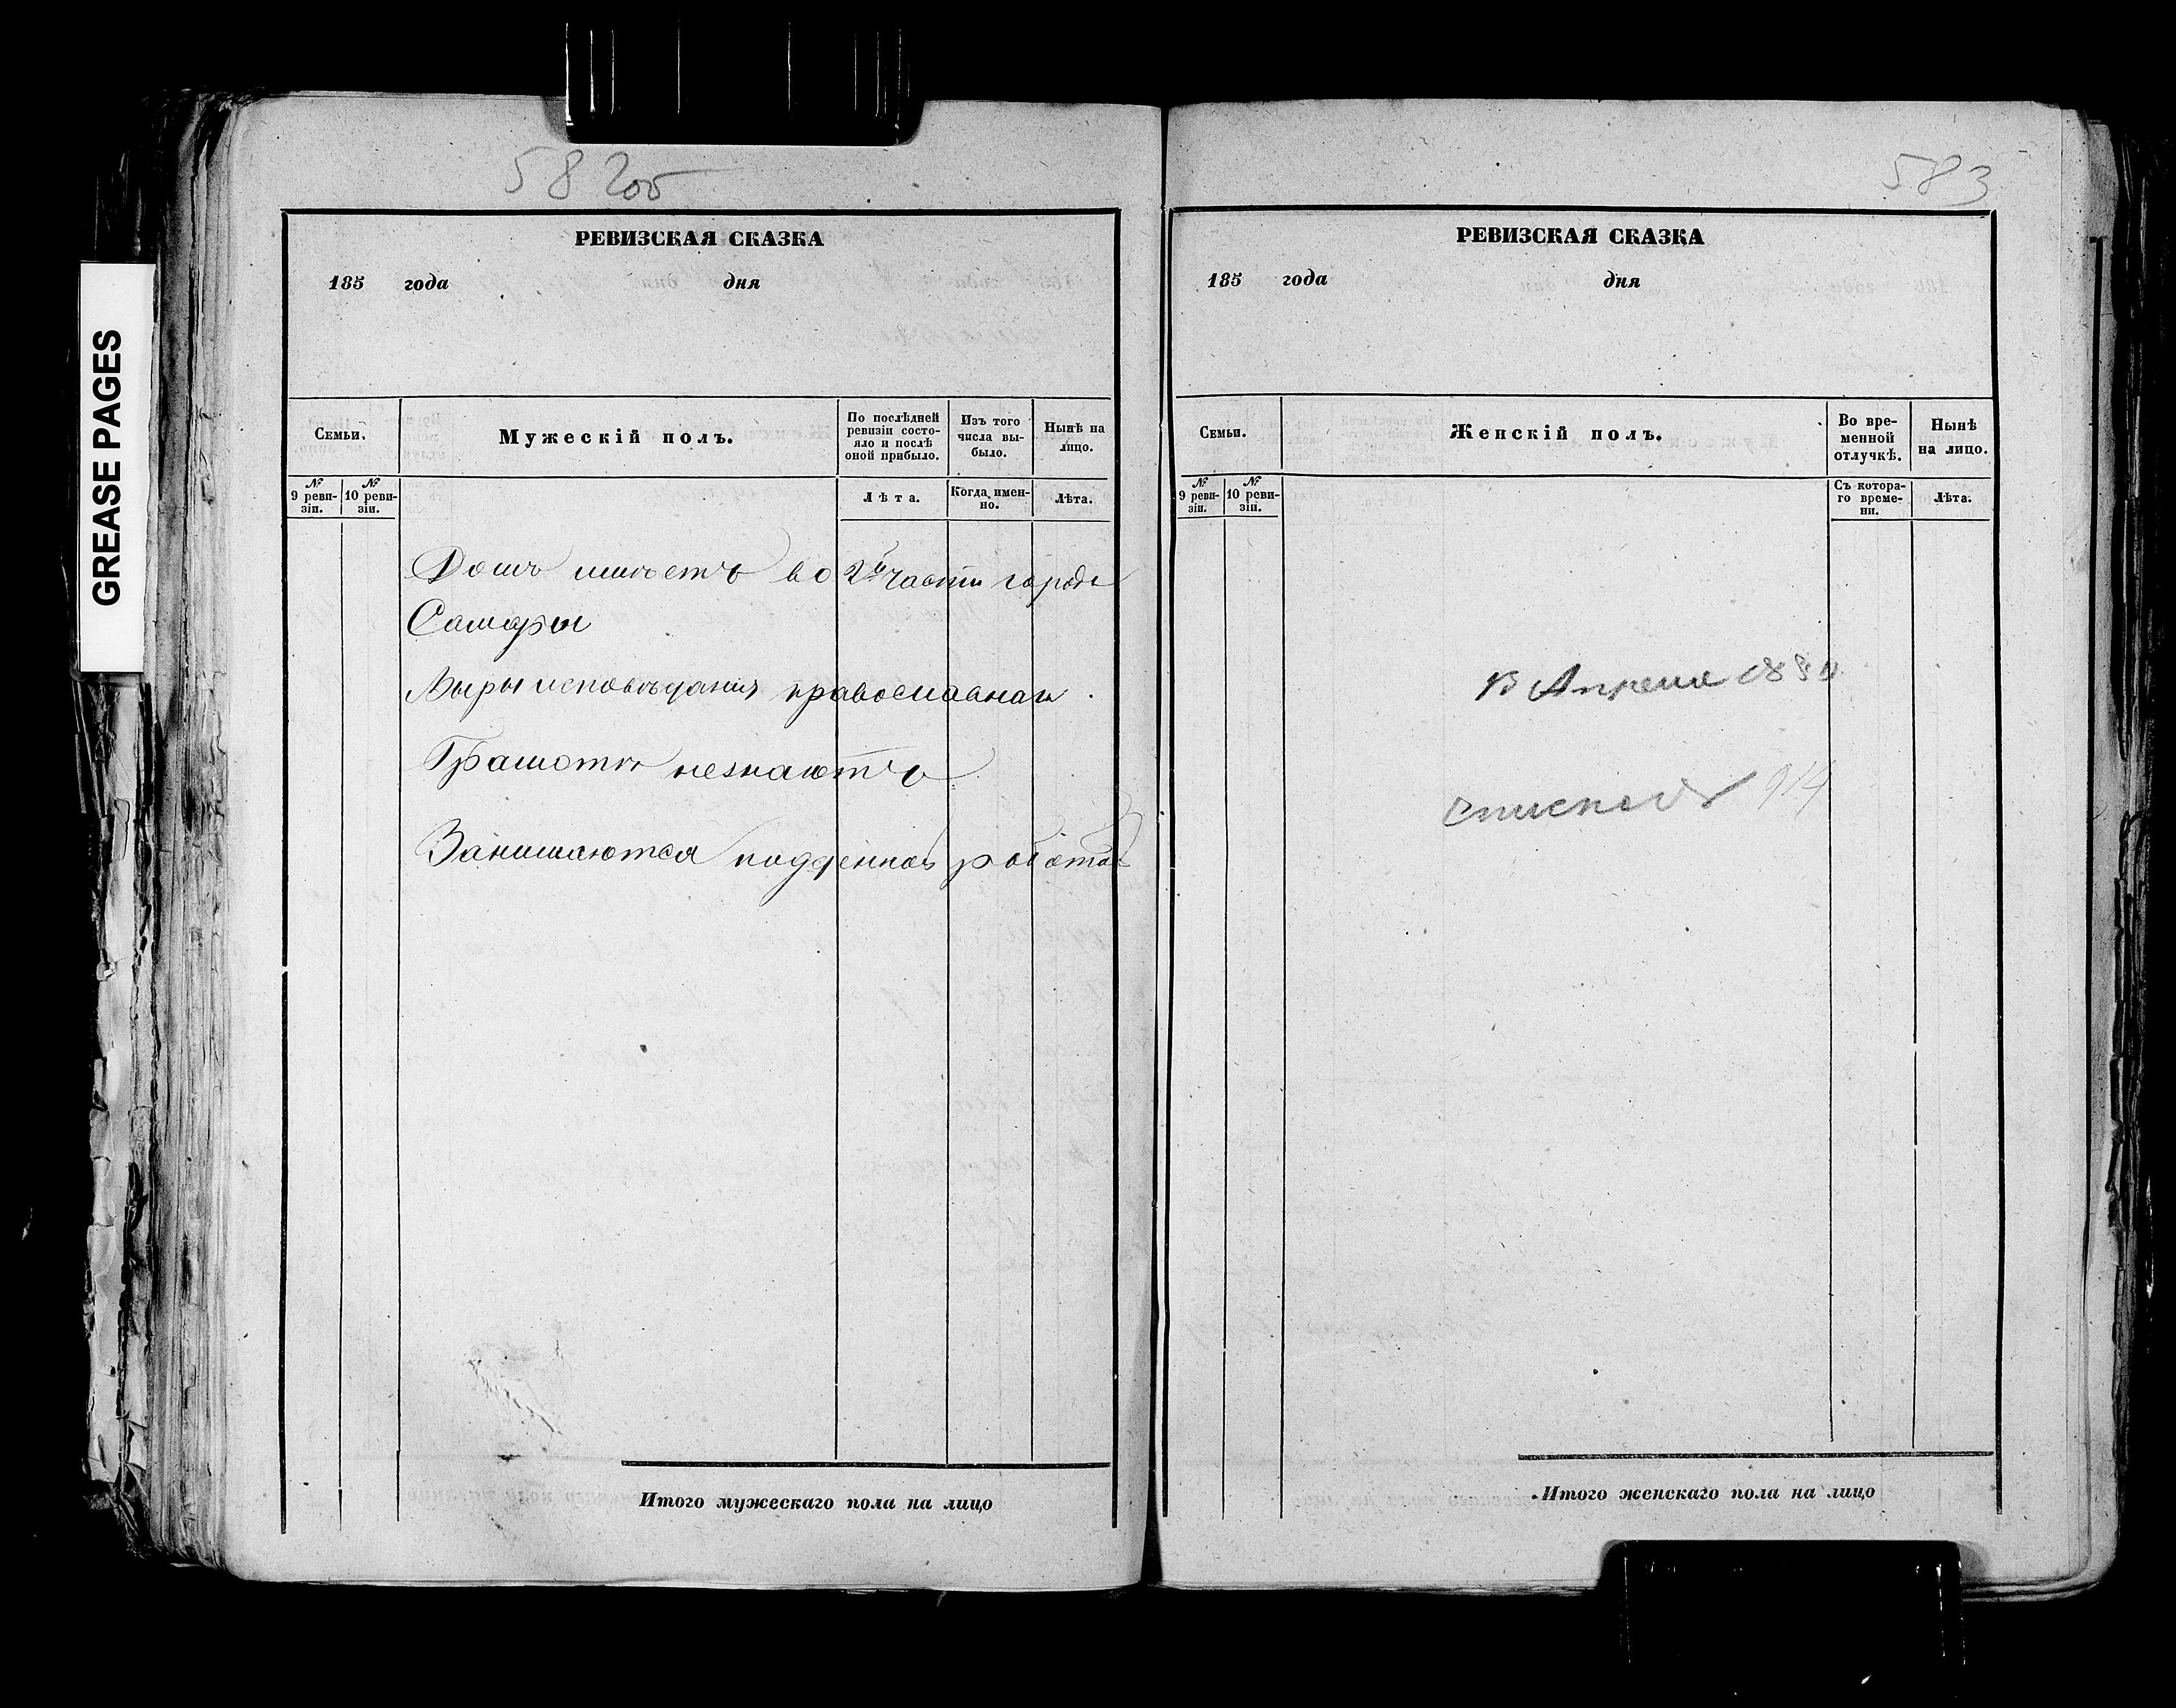 GREASE PAGES
58 2об
РЕВИЗСКАЯ СКАЗКА
185 года дня
Семьи.
Мужескій полъ.
По послѣдней ревизіи состо-
яло и послѣ оной прибыло.
Изъ того числа вы-
было.
Нынѣ на лицо.
№ 9 реви-
зіи.
№ 10 реви-
зіи.
Лѣта.
Когда имен-
но.
Лѣта.
Домъ имѣетъ во 2й части города
Самары
Вѣры исповѣданія православнаго
Грамотѣ незнаютъ
Занимаются подденной работой
Итого мужескаго пола на лицо
583
РЕВИЗСКАЯ СКАЗКА
185 года дня
Семьи.
Женскій полъ.
Во вре-
менной
отлучкѣ.
Нынѣ
на лицо.
№ 9 реви-
зіи.
№ 10 реви-
зіи.
Съ котора-
го време-
ни.
Лѣта.
В Апреле
914
Итого женскаго пола на лицо